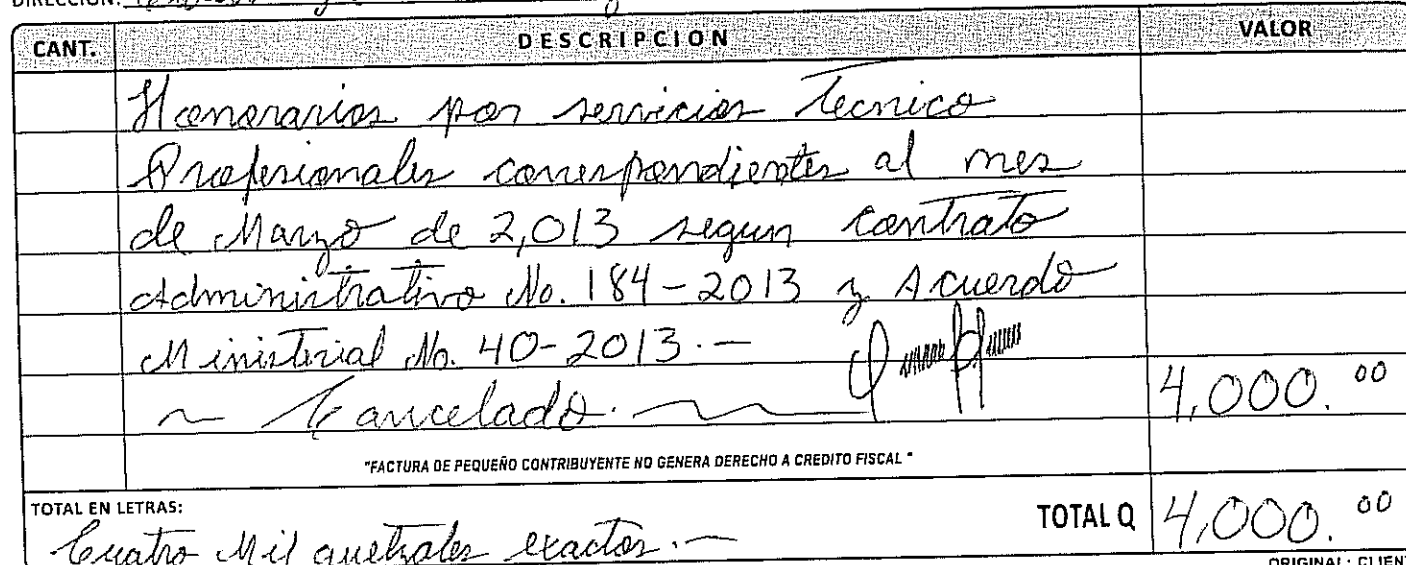 DIRECCION:
CANT. DESCRIPCION VALOR
Honorarios por servicios Tecnico
Profesionales correspondientes al mes
de Marzo de 2,013 segun contrato
Administrativo No. 184-2013 y Acuerdo
Ministerial No. 40-2013.-
Cancelado. 4,000.00
"FACTURA DE PEQUEÑO CONTRIBUYENTE NO GENERA DERECHO A CREDITO FISCAL"
TOTAL EN LETRAS: TOTAL Q 4,000.00
Cuatro Mil quetzales exactos.-
ORIGINAL: CLIENT